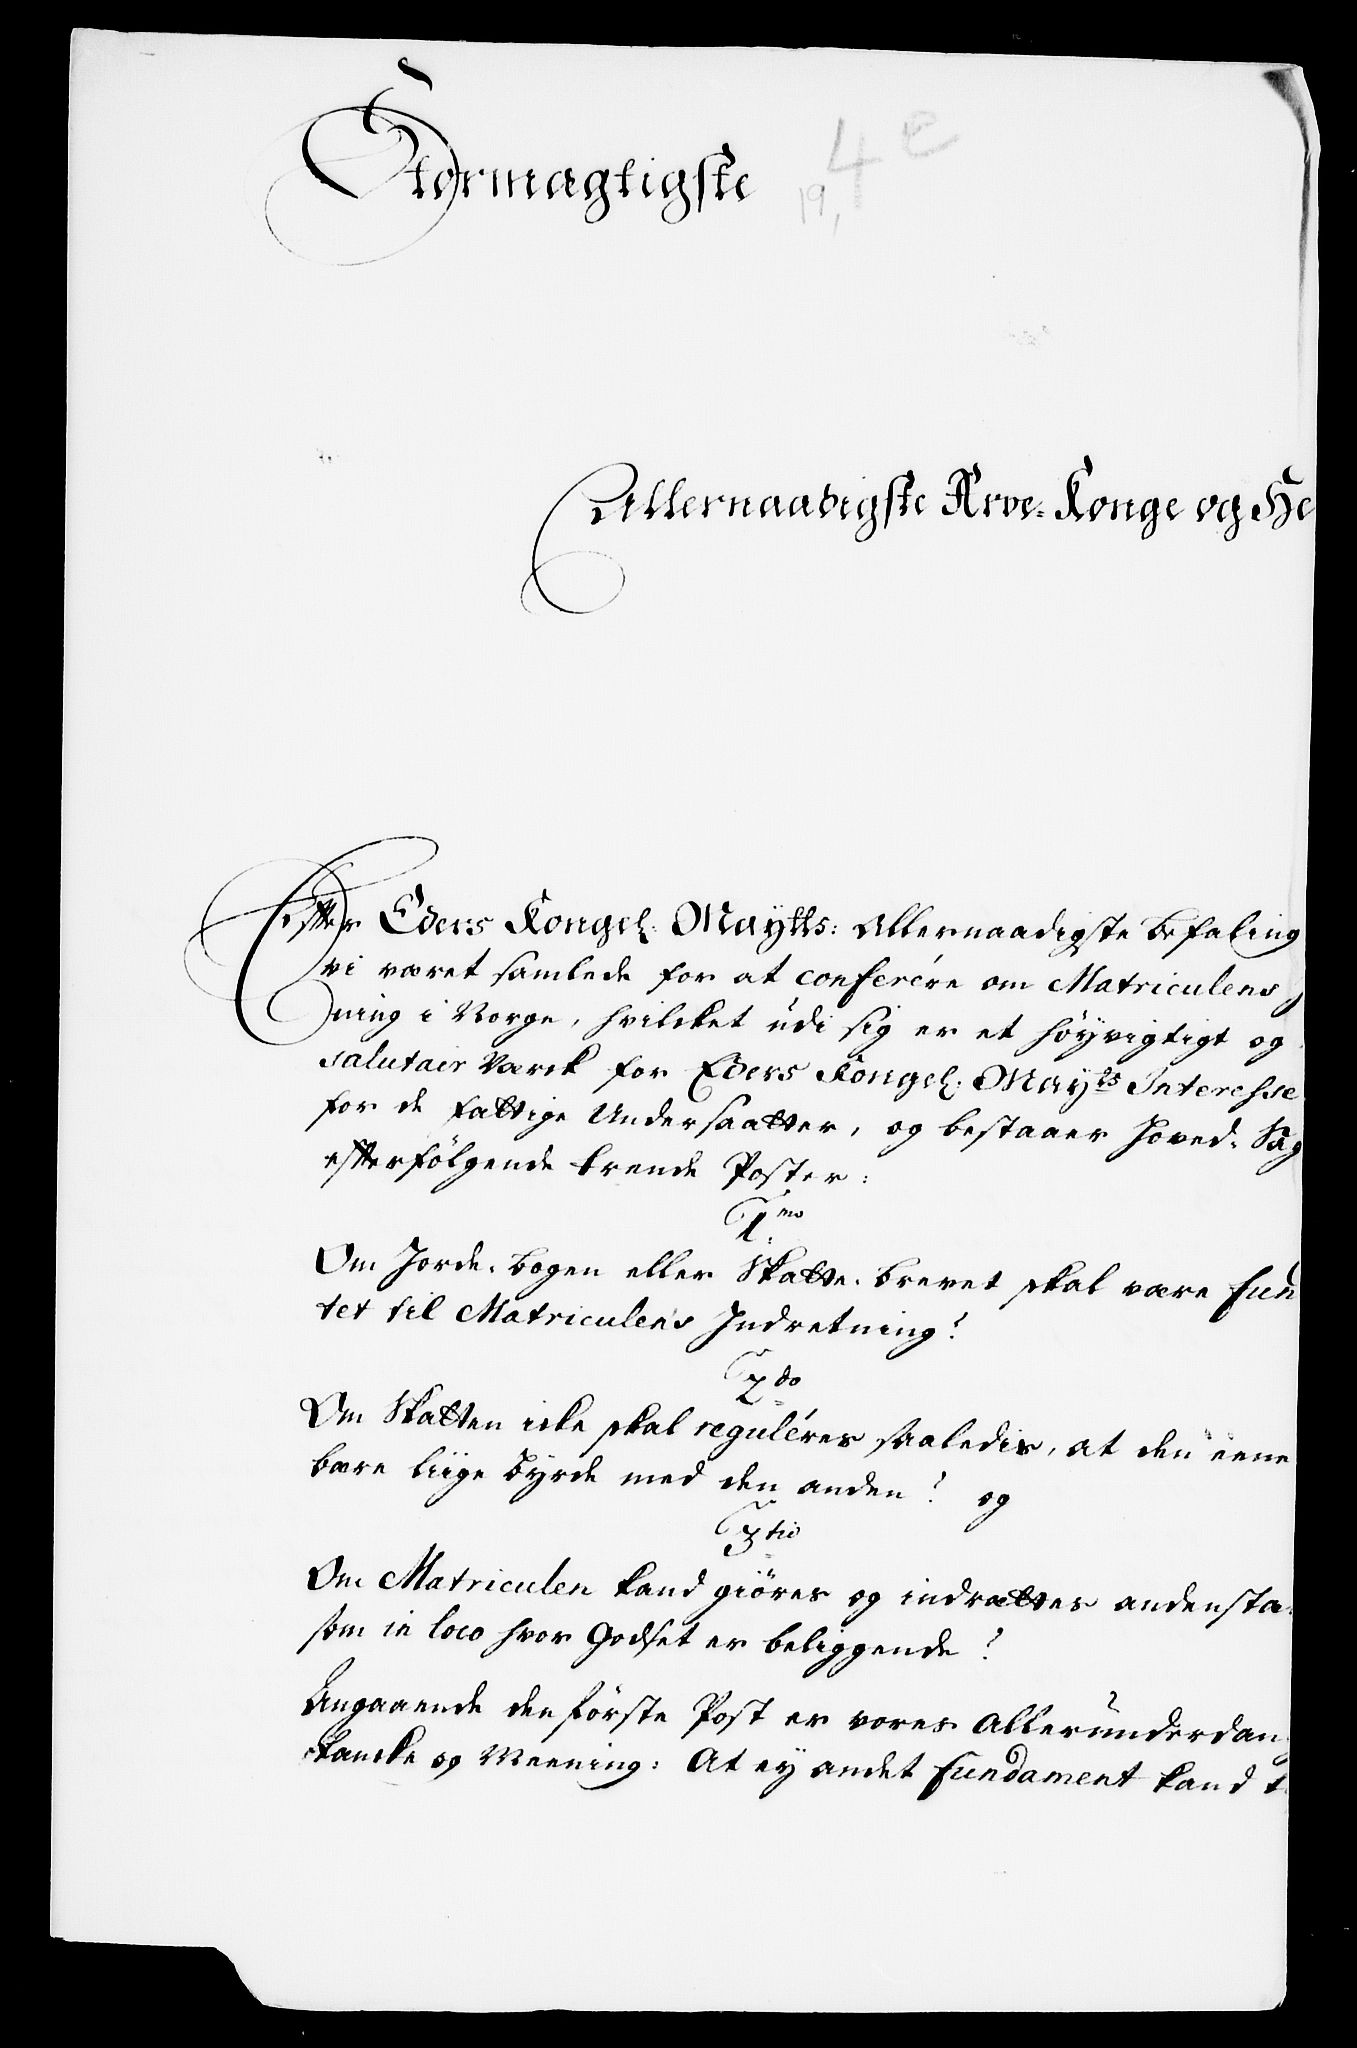 Stormagtigste
4 e
19,
Allernaadigste Arve-Konge og He
Efter Eders Kongel. Maytts: Allernaadigste Befaling
vi været samlede for at conferére om Matriculens
ning i Norge, hvilcket udi sig er et höyvigtigt og
salutair Værck for Eders Kongel. Mayts Interesse
for de fattige Undersaatter, og bestaaer Hoved-Sag
efterfölgende trende Poster:
1mo
Om Jorde-bogen eller Skatte-brevet skal være fun
tet til Matriculens Indretning?
2do
Om Skatten icke skal reguléres saaledis, at den eene
bære liige Byrde med den anden? og
3tio
Om Matriculen kand giöres og indrættes andensta
som in loco hvor Godset er beliggende?
Angaaende den förste Post er vores Allerunderdan
tancke og Meening: At ey andet fundament kand